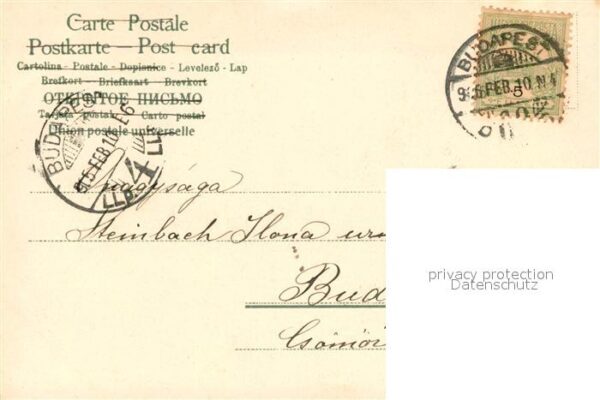 Carte Postale
Postkarte — Post card
Cartolina - Postale - Dopisnice - Levelező - Lap
Brefkort - Briefkaart - Brevkort
ОТКРЫТОЕ ПИСЬМО
Tarjeta postal Carte postal
Union postale universelle
BUDAPEST
915 FEB 10
4
BUDAPEST
915 FEB 10 N4
5
nagysága
Steinbach Ilona
Bud
Csömör
privacy protection
Datenschutz